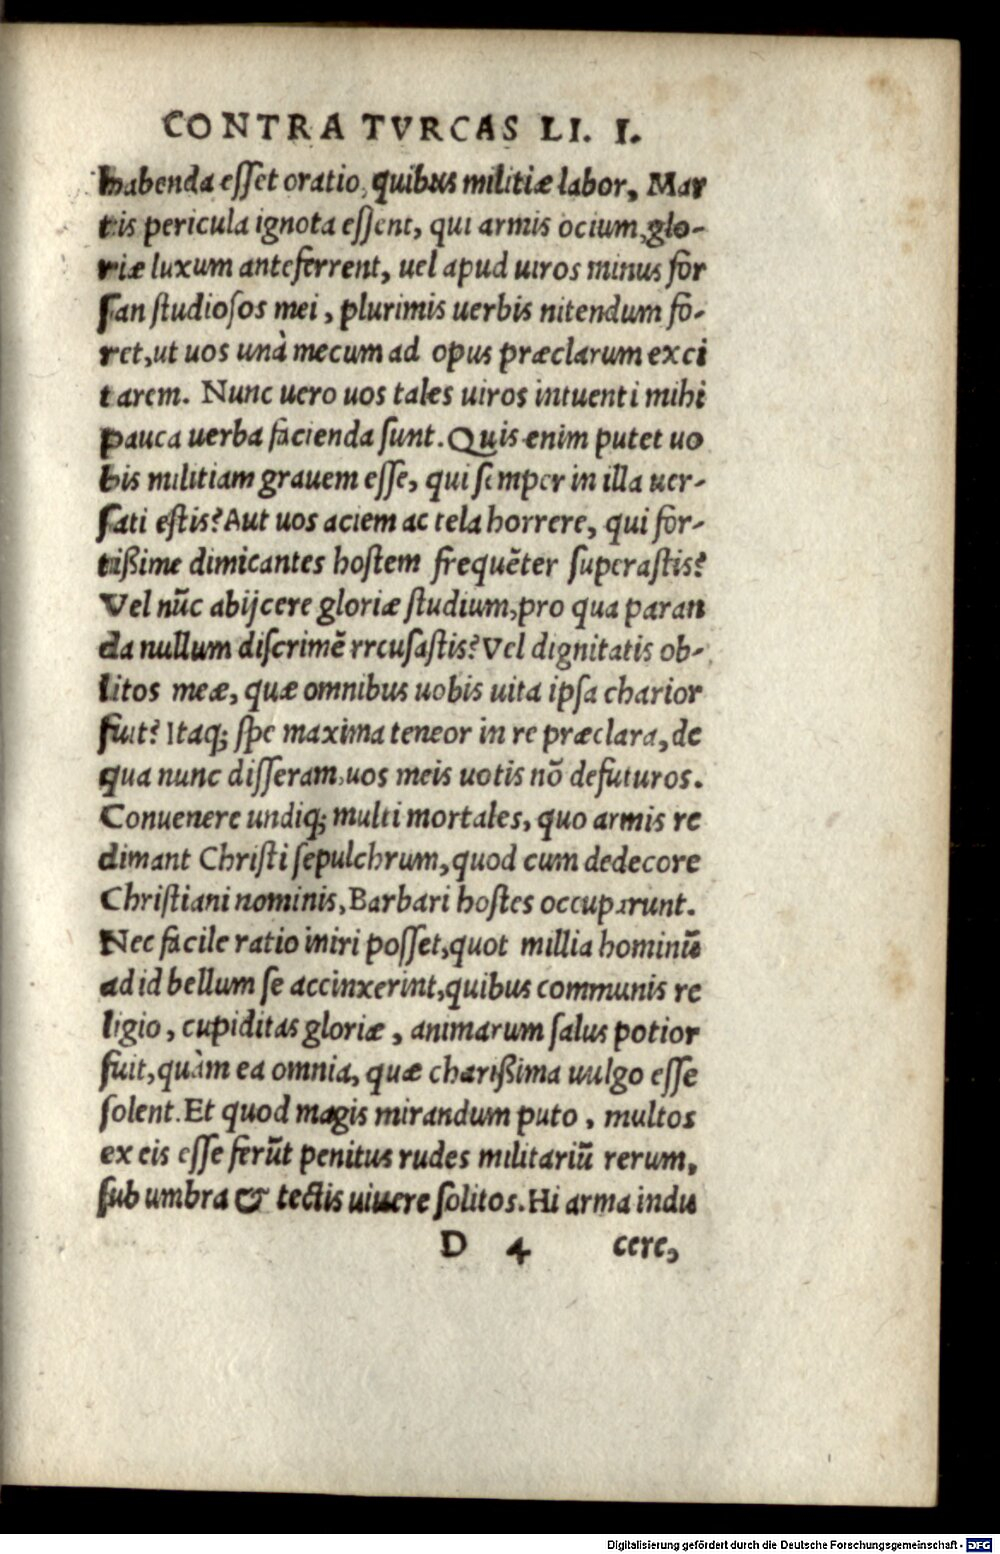 CONTRA TVRCAS LI. I.
habenda esset oratio, quibus militiæ labor, Mar
tis pericula ignota essent, qui armis ocium, glo-
riæ luxum anteferrent, uel apud uiros minus for
san studiosos mei, plurimis uerbis nitendum fo-
ret, ut uos unà mecum ad opus præclarum exci
tarem. Nunc uero uos tales uiros intuenti mihi
pauca uerba facienda sunt. Quis enim putet uo
bis militiam grauem esse, qui semper in illa uer-
sati estis? Aut uos aciem ac tela horrere, qui for-
tißime dimicantes hostem frequẽter superastis?
Vel nũc abijcere gloriæ studium, pro qua paran
da nullum discrimẽ rrcusastis? Vel dignitatis ob-
litos meæ, quæ omnibus uobis uita ipsa charior
fuit? Itaq; spe maxima teneor in re præclara, de
qua nunc disseram, uos meis uotis nõ defuturos.
Conuenere undiq; multi mortales, quo armis re
dimant Christi sepulchrum, quod cum dedecore
Christiani nominis, Barbari hostes occuparunt.
Nec facile ratio iniri posset, quot millia hominũ
ad id bellum se accinxerint, quibus communis re
ligio, cupiditas gloriæ, animarum salus potior
fuit, quàm ea omnia, quæ charißima uulgo esse
solent. Et quod magis mirandum puto, multos
ex eis esse ferũt penitus rudes militariũ rerum,
sub umbra & tectis uiuere solitos. Hi arma indu
D 4 cere,
Digitalisierung gefördert durch die Deutsche Forschungsgemeinschaft - DFG